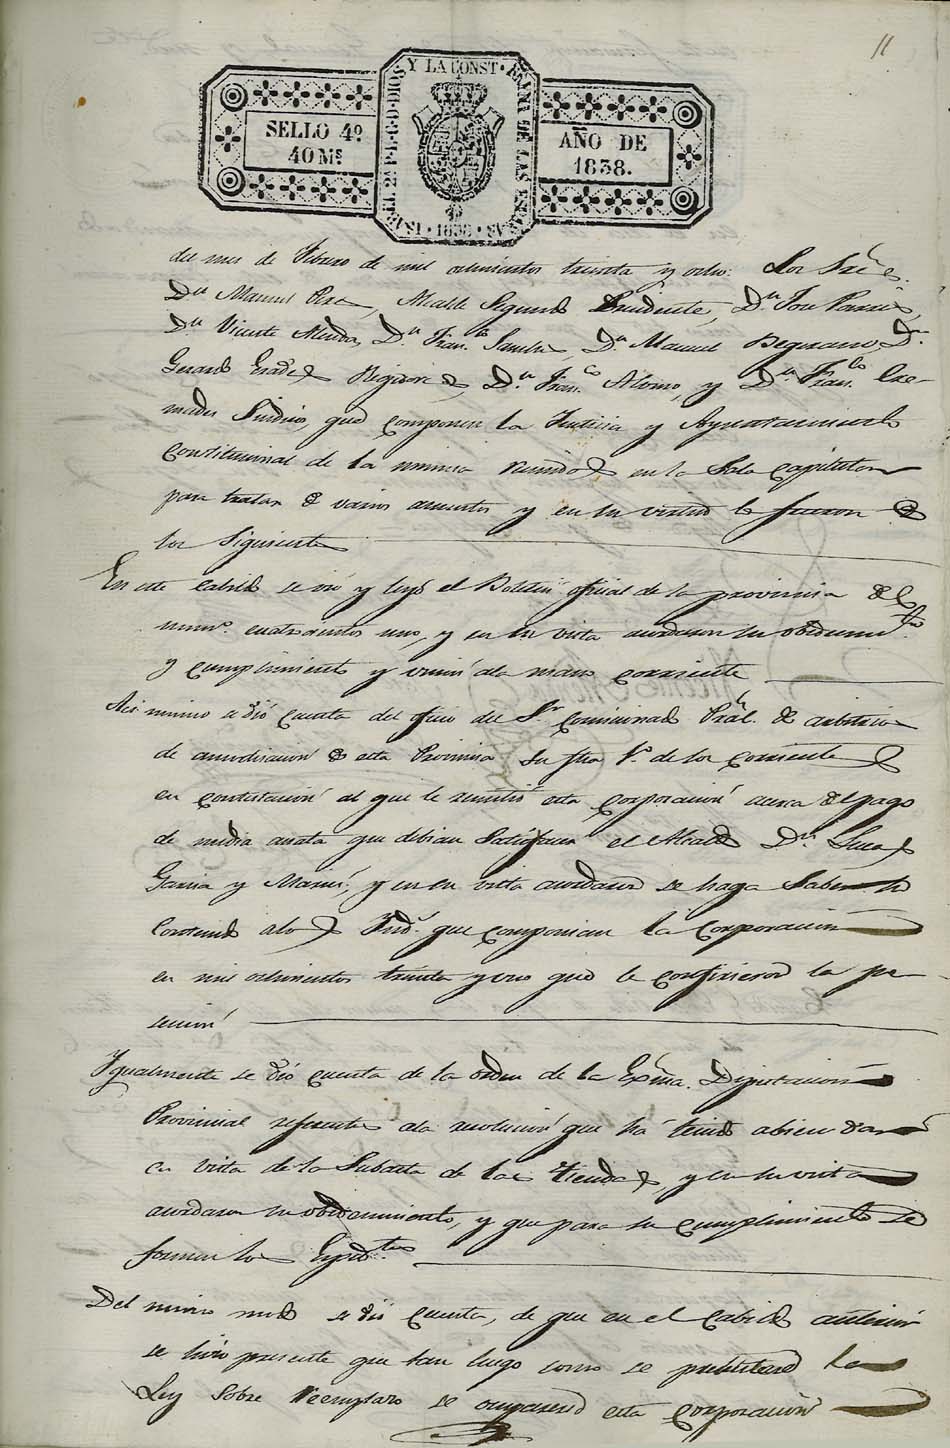 11
SELLO 4º
40 Mˢ
ISABEL 2ª P.L.G.D.DIOS Y LA CONST. REYNA DE LAS ESPAÑAS 1838
AÑO DE
1838.
del mes de Febrero de mil ochocientos treinta y ocho. Los Sres.
Dn Manuel Alcalde Segundo Presidente, Dn Jose
Dn Vicente Dn Franco Dn Manuel Dn
Gerardo Regidores, Dn Franco Alonso, y Dn Franco Cre-
mades Sindico, que componen la Justicia y Ayuntamiento
Constitucional de la misma reunidos en la Sala Capitular
para tratar de varios asuntos y en su virtud lo fueron de
los siguientes
En este Cabildo se vió y leyó el Boletin oficial de la provincia del
numo. cuatrocientos uno, y en su vista acordaron su obedecimto
y cumplimiento y unir á la mano corriente
Asi mismo se dió cuenta del oficio del Sr Comisionado Pral. de arbitrios
de amortisacion de esta Provincia su fha 1º de los corrientes
en contestacion al que le remitió esta corporacion acerca del pago
de media anata que debian satisfacer el Alcalde Dn Lucas
Garcia y y en su vista acordaron se haga saber su
contenido á los Indˢ. que componian la corporacion
en mil ochocientos treinta y uno que le confirieron la po-
secion
Ygualmente se dió cuenta de la orden de la Exma. Diputacion
Provincial referente á la resolucion que ha tenido abien dar
en vista de la Subasta de las tiendas, y en su vista
acordaron su obedecimiento, y que para su cumplimiento se
formen los Expedtes
Del mismo modo se dió cuenta, de que en el Cabildo anterior
se hizo presente que tan luego como se publicase la
Ley sobre Reemplazo se ocupase esta corporacion